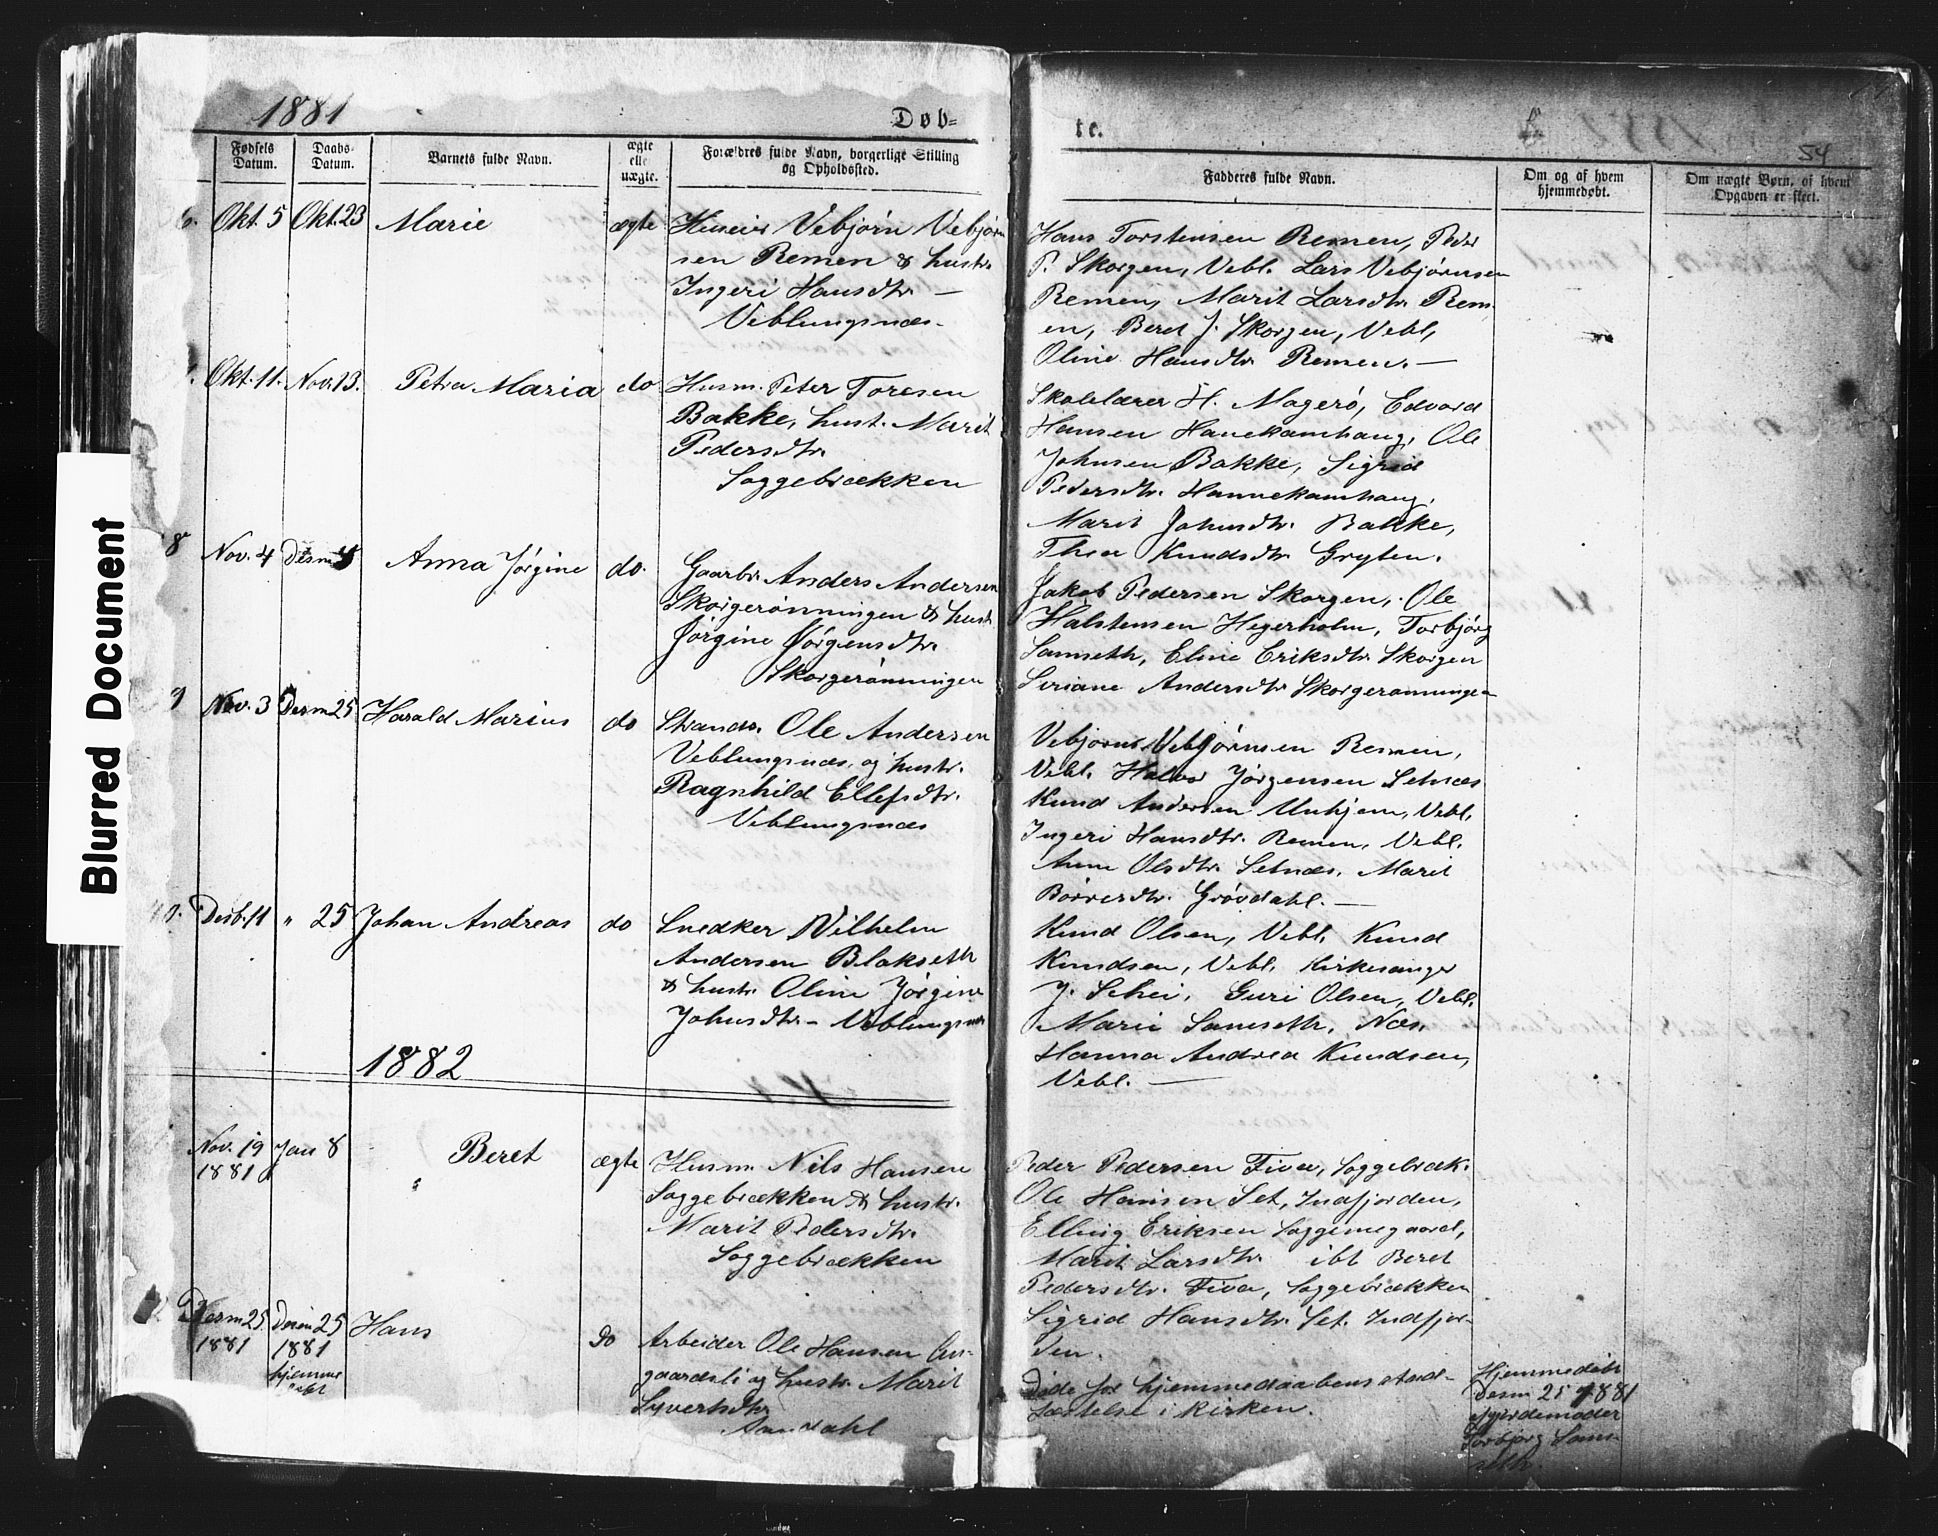 Blurred Document
1881
Døb=
te.
54
Fødsels Datum.
Daabs-Datum.
Barnets fulde Navn.
ægte elle uægte.
Forældres fulde Navn, borgerlige Stilling og Opholdssted.
Fadderes fulde Navn.
Om og af hvem hjemmedøbt.
Om uægte Børn, af hvem Opgaven er skeet.
Okt. 5 Okt. 23 Marie ægte
Vebjørn Vebjørn
sen Remen & hustr.
Ingeri Hansdtr. —
Veblungsnæs.
Hans Torstensen Remen, Peder
P. Skorgen, Vebl. Lars Vebjørnsen
Remen, Marit Larsdtr. Rem
en, Beret J. Skorgen, Vebl,
Oline Hansdtr. Remen. —
Okt. 11. Nov. 13. Petra Maria do
Husm. Peter Toresen
Bakke, hust. Marit
Pedersdtr.
Soggebrækken
Skolelærer H. Magerø, Edvard
Hansen Hanekamhaug, Ole
Johnsen Bakke, Sigrid
Pedersdtr. Hannekamhaug,
Marit Johnsdtr. Bakke,
Thea Knudsdtr. Gryten.
8 Nov. 4 Desm 4 Anna Jørgine do.
Gaarbr. Anders Andersen
Skorgerønningen & hust
Jørgine Jørgensdtr.
Skorgerønningen
Jakob Pedersen Skorgen, Ole
Halstensen Hegerholm, Torbjørg
Samseth, Eline Eriksdtr. Skorgen
Seriane Andersdtr. Skorgerønningen
9 Nov. 3 Desm 25 Harald Marius do
Strands. Ole Andersen
Veblungsnæs, og hustr.
Ragnhild Ellefsdtr.
Veblungsnæs
Vebjørn Vebjørnsen Remen,
Vebl. Halvor Jørgensen Setnæs
Knud Andersen Unhjem, Vebl.
Ingeri Hansdtr. Remen, Vebl.
Anne Olsdtr. Setnæs, Marit
Børresdtr. Grøvdahl. —
Desb. 11 " 25 Johan Andreas do
Snedker Vilhelm
Andersen Blakseth
& hustr. Oline Jørgine
Johnsdtr. - Veblungsnæs
Knud Olsen, Vebl. Knud
Knudsen, Vebl. Kirkesanger
J. Schei, Guri Olsen, Vebl.
Marie Samseth, Næs.
Hanna Andrea Knudsen,
Vebl. —
1882
Nov. 19 Jan 8 Beret ægte
1881
Husm. Nils Hansen
Soggebrækken & hustr.
Marit Pedersdtr.
Soggebrækken
Peder Pedersen Fiva, Soggebræk.
Ole Hansen Set, Indfjorden,
Elling Eriksen Soggemegaard,
Marit Larsdtr. ibt Beret
Pedersdtr. Fiva, Soggebrækken
Sigrid Hansdtr. Set. Indfjor-
den.
Desm 25 Desm 25 Hans do
1881 1881
hjemme
døbt
Arbeider Ole Hansen
gaardsli og hustr. Marit
Syvertsdtr.
Aandahl
Døde før hjemmedaabens stad-
fæstelse i kirken.
Hjemmedøbt
Desm 25 1881
af Jordemoder
Torbjørg Sam-
seth.